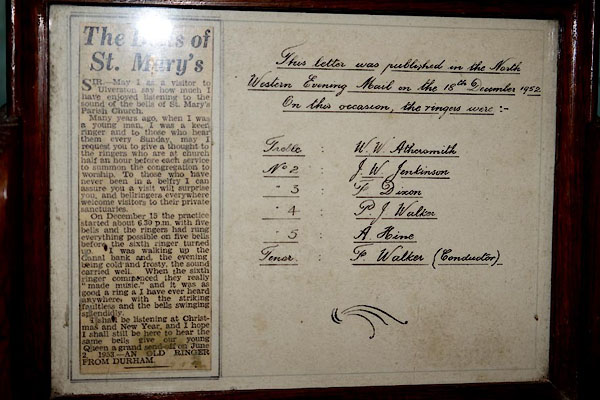 The Bells of
St. Mary's
SIR—May I as a visitor to
Ulverston say how much I
have enjoyed listening to the
sound of the bells of St. Mary's
Parish Church.
Many years ago, when I was
a young man, I was a keen
ringer and to those who hear
them every Sunday, may I
request you to give a thought to
the ringers who are at church
half an hour before each service
to summon the congregation to
worship. To those who have
never been in a belfry I can
assure you a visit will surprise
you, and bellringers everywhere
welcome visitors to their private
sanctuaries.
On December 15 the practice
started about 6.30 p.m. with five
bells and the ringers had rung
everything possible on five bells
before the sixth ringer turned
up. I was walking up the
Canal bank and, the evening
being cold and frosty, the sound
carried well. When the sixth
ringer commenced they really
"made music," and it was as
good a ring a I have ever heard
anywhere, with the striking
faultless and the bells swinging
splendidly.
I shall be listening at Christ-
mas and New Year, and I hope
I shall still be here to hear the
same bells give our young
Queen a grand send-off on June
2, 1953.—AN OLD RINGER
FROM DURHAM.
This letter was published in the North
Western Evening Mail on the 18th December 1952.
On this occasion, the ringers were :-
Treble : W. W. Athersmith
No 2 : J. W. Jenkinson
" 3 : F. Dixon
" 4 : P. J. Walker
" 5 : A Hine
Tenor : F. Walker (Conductor).